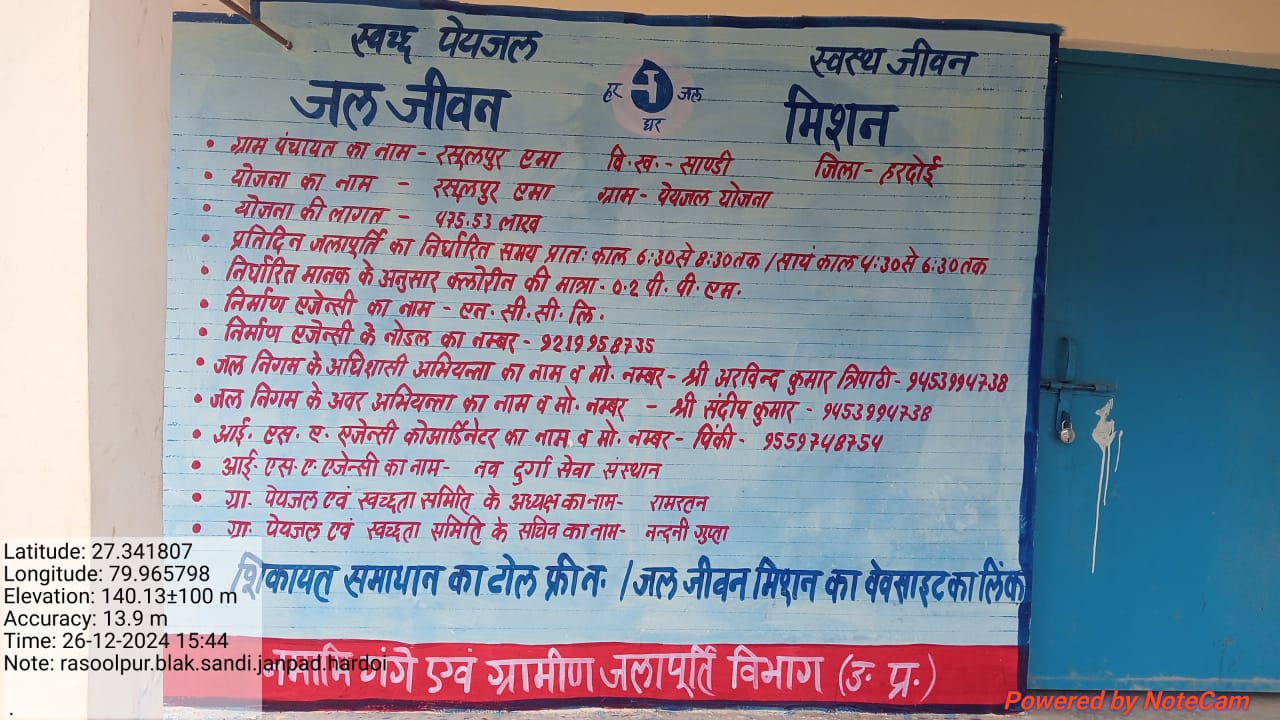 स्वच्छ पेयजल
स्वस्थ जीवन
जल जीवन
हर जल
घर
मिशन
• ग्राम पंचायत का नाम - रसूलपुर एमा वि.ख.- साण्डी जिला - हरदोई
• योजना का नाम - रसूलपुर एमा ग्राम - पेयजल योजना
• योजना की लागत - 475.53 लाख
• प्रतिदिन जलापूर्ति का निर्धारित समय प्रातः काल 6:30 से 8:30 तक / सायं काल 4:30 से 6:30 तक
• निर्धारित मानक के अनुसार क्लोरीन की मात्रा - 0.2 पी. पी. एम.
• निर्माण एजेन्सी का नाम - एन. सी. सी. लि.
• निर्माण एजेन्सी के नोडल का नम्बर - 9219958735
• जल निगम के अधिशासी अभियन्ता का नाम व मो. नम्बर - श्री अरविन्द कुमार त्रिपाठी - 9453994738
• जल निगम के अवर अभियन्ता का नाम व मो. नम्बर - श्री संदीप कुमार - 9453994738
• आई. एस. ए. एजेन्सी कोआर्डिनेटर का नाम व मो. नम्बर - पिंकी - 9559748754
• आई. एस. ए. एजेन्सी का नाम - नव दुर्गा सेवा संस्थान
• ग्रा. पेयजल एवं स्वच्छता समिति के अध्यक्ष का नाम - रामरतन
• ग्रा. पेयजल एवं स्वच्छता समिति के सचिव का नाम - नन्दनी गुप्ता
शिकायत समाधान का टोल फ्री न. / जल जीवन मिशन का वेवसाइट का लिंक
नमामि गंगे एवं ग्रामीण जलापूर्ति विभाग (उ. प्र.)
Latitude: 27.341807
Longitude: 79.965798
Elevation: 140.13±100 m
Accuracy: 13.9 m
Time: 26-12-2024 15:44
Note: rasoolpur.blak.sandi.janpad.hardoi
.
Powered by NoteCam